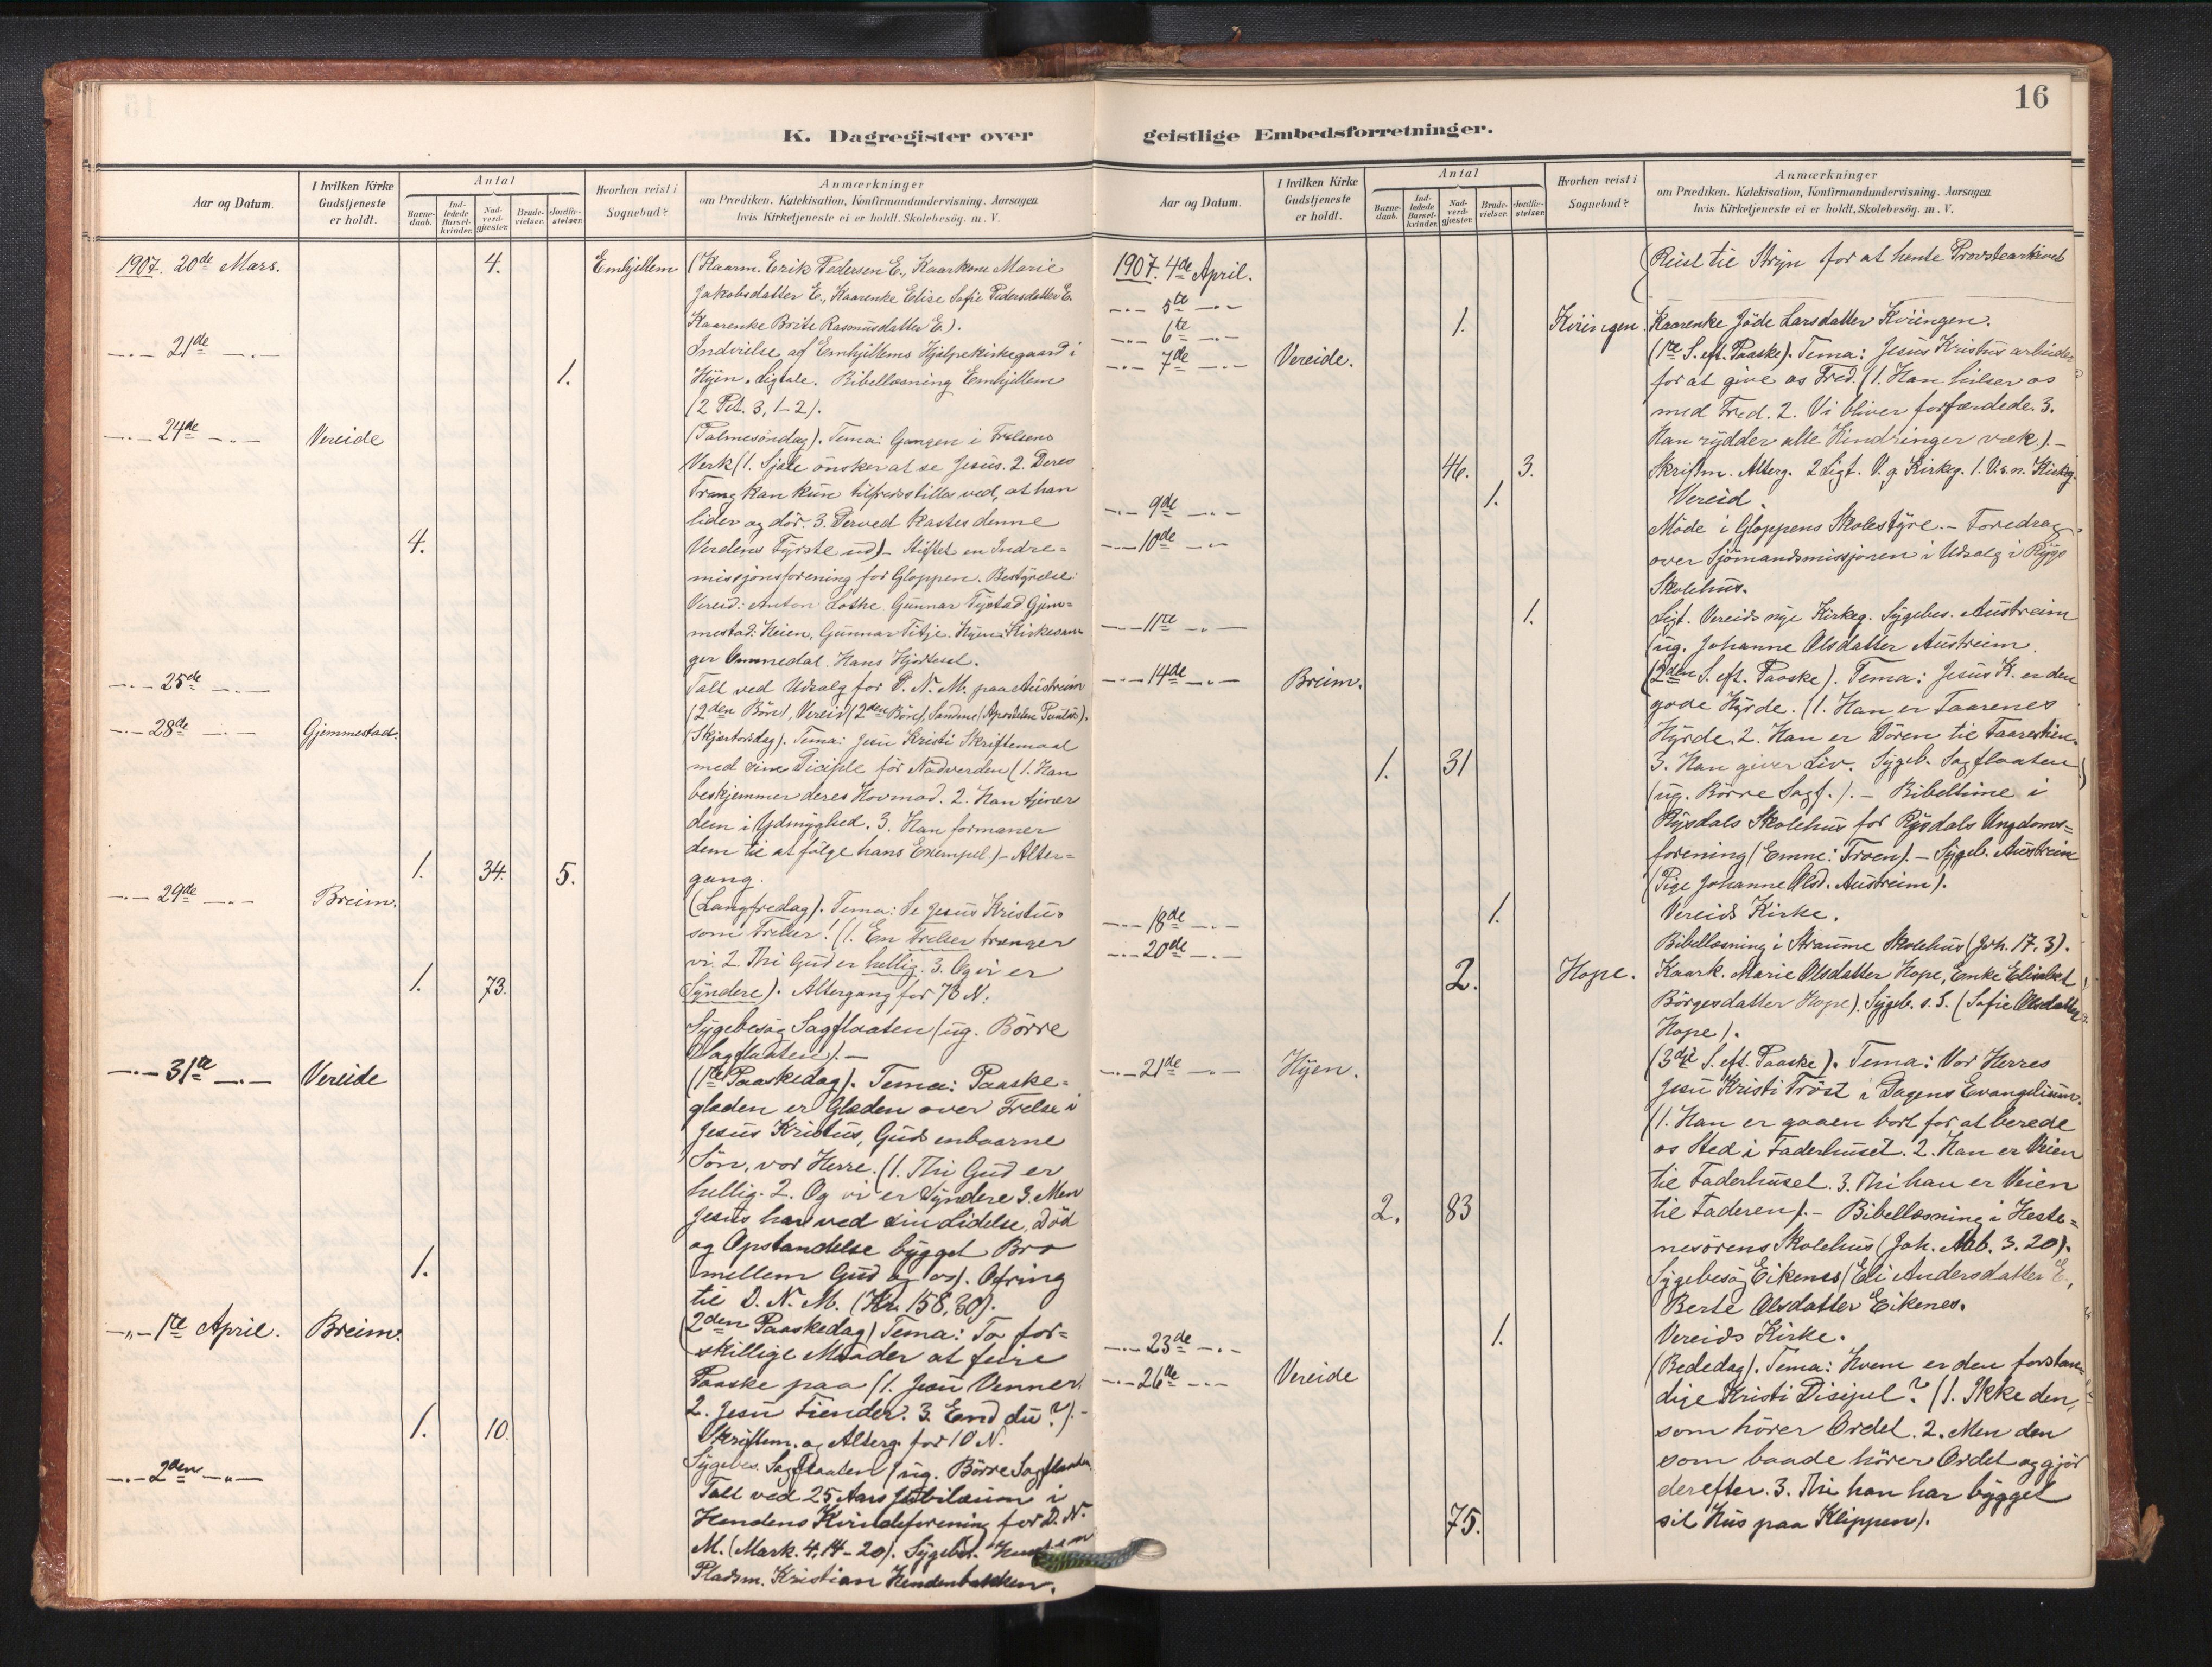 16
K. Dagregister over geistlige Embedsforretninger.
Aar og Datum.
I hvilken Kirke Gudstjeneste er holdt.
Antal
Barne-daab.
Ind-ledede Barsel-kvinder.
Nad-verd-gjæster.
Brude-vielser.
Jordfæ-stelser.
Hvorhen reist i Sognebud?
Anmærkninger
om Prædiken, Katekisation, Konfirmandundervisning. Aarsagen
hvis Kirketjeneste ei er holdt. Skolebesøg. m. V.
1907. 20de Mars. 4. Emhjellem (Kaarm. Erik Pedersen E., Kaarkone Marie
Jakobsdatter E., Kaarenke Elise Sofie Pedersdatter E.
Kaarenke Brite Rasmusdatter E.).
-.- 21de -.- Indvielse af Emhjellems Hjelpekirkegaard i
1. Hyen. Ligtale. Bibellæsning Emhjellem
(2 Pet. 3, 1-2).
-.- 24de -.- Vereide (Palmesöndag). Tema: Gangen i Frelsens
Verk (1. Sjæle önsker at se Jesus. 2. Deres
Trang kan kun tilfredsstilles ved, at han
lider og dör. 3. Derved kastes denne
4. Verdens Fyrste ud) - Stiftet en Indre=
missjonsforening for Gloppen. Bestyrelse:
Vereid: Anton Lothe. Gunnar Tystad Gjem=
mestad: Heien, Gunnar Fitje. Hyen: Kirkesan-
ger Ommedal. Hans Hjorteset.
-.- 25de -.- Talt ved Udsalg for D. N. M. paa Austreim
(2den Bön), Vereid (2den Bön), Sandene (Apostelen Paulus).
-.- 28de -.- Gjemmestad. (Skjærtorsdag). Tema: Jesu Kristi Skriftemaal
med sine Disciple för Nadverden (1. Han
beskjemmer deres Hovmod. 2. Han tjener
dem i Ydmyghed. 3. Han formaner
dem til at fölge hans Exempel.) - Alter=
1. 34. 5. gang.
-.- 29de -.- Breim. (Langfredag). Tema: Se Jesus Kristus
som Frelser! (1. En Frelser trænger
vi. 2. Thi Gud er hellig. 3. Og vi er
1. 73. Syndere). Altergang for 73 N.
Sygebesög Sagflaaten (ug. Börre
Sagflaaten). -
-.- 31te -.- Vereide (1te Paaskedag). Tema: Paaske=
glæden er Glæden over Frelse i
Jesus Kristus, Guds enbaarne
Sön, vor Herre. (1. Thi Gud er
hellig. 2. Og vi er Syndere 3. Men
Jesus har ved sin Lidelse, Död
og Opstandelse bygget Bro
1. mellem Gud og os). Ofring
til D. N. M. (Kr. 158,80).
-"- 1te April. Breim. (2den Paaskedag) Tema: To for=
skillige Maader at feire
Paaske paa (1. Jesu Venner.
2. Jesu Fiender. 3. End du?). -
1. 10. Skriftem. og Alterg. for 10 N.
-.- 2den -"- Sygebes. Sagflaaten (ug. Börre Sagflaaten
Talt ved 25 Aars Jubilæum i
Hendens Kvindeforening for D. N.
M. (Mark. 4, 14-20). Sygebes.
Pladsm. Kristian Hendenbakken.
Aar og Datum.
I hvilken Kirke Gudstjeneste er holdt.
Antal
Barne-daab.
Ind-ledede Barsel-kvinder.
Nad-verd-gjæster.
Brude-vielser.
Jordfæ-stelser.
Hvorhen reist i Sognebud?
Anmærkninger
om Prædiken, Katekisation, Konfirmandundervisning. Aarsagen
hvis Kirketjeneste ei er holdt. Skolebesøg. m. V.
1907. 4de April. (Reist til Stryn for at hente Provstearkivet
-.- 5te -.-
-.- 6te -.- 1. Kvingen. Kaarenke Jöde Larsdatter Kvingen.
-.- 7de -.- Vereide. (1te S. eft. Paaske). Tema: Jesus Kristus arbeider
for at give os Fred. (1. Han hilser os
med Fred. 2. Vi bliver forfærdede. 3.
Han rydder alle Hindringer væk.). -
46. 3. Skriftm. Alterg. 2 Ligt. V. g. Kirkeg. 1. V. s. n. Kirkeg.
-.- 9de -.- 1. Vereid.
-.- 10de -.- Möde i Gloppens Skolestyre. - Foredrag
over Sjömandsmissjonen i Udsalg i Rygs
Skolehus.
-.- 11te -.- 1. Ligt. Vereids nye Kirkeg. Sygebes. Austreim
(ug. Johanne Olsdatter Austreim.
-.- 14de -.- Breim. (2den S. eft. Paaske). Tema: Jesus K. er den
gode Hyrde. (1. Han er Faarenes
Hyrde. 2. Han er Dören til Faarestien.
1. 31 3. Han giver Liv. Sygeb. Sagflaaten
(ug. Börre Sagf.). - Bibeltime i
Rysdals Skolehus for Rysdals Ungdoms=
forening (Emne: Troen). - Sygeb. Austreim
(Pige Johanne Olsd. Austreim).
-.- 18de -.- 1. Vereids Kirke.
-.- 20de -.- Bibellæsning i Straume Skolehus (Joh. 17, 3).
2. Hope. Kaark. Marie Olsdatter Hope, Enke Elisabet
Börgesdatter Hope). Sygeb. s. S. (Sofie Olsdatter
Hope).
-.- 21de -.- Hyen. (3die S. eft. Paaske). Tema: Vor Herres
Jesu Kristi Tröst i Dagens Evangelium.
(1. Han er gaaen bort for at berede
os Sted i Faderhuset. 2. Han er Veien
til Faderhuset. 3. Thi han er Veien
2. 83 til Faderen). - Bibellæsning i Heste=
nesörens Skolehus (Joh. Aab. 3. 20).
Sygebesög Eikenes (Eli Andersdatter E.,
Berte Olsdatter Eikenes.
-.- 23de -.- 1. Vereids Kirke.
-.- 26de -.- Vereide (Bededag). Tema: Hvem er den forstan-
dige Kristi Discipel? (1. Ikke den,
som hörer Ordet. 2. Men den
som baade hörer Ordet og gjör
derefter. 3. Thi han har bygget
75. sit Hus paa Klippen).